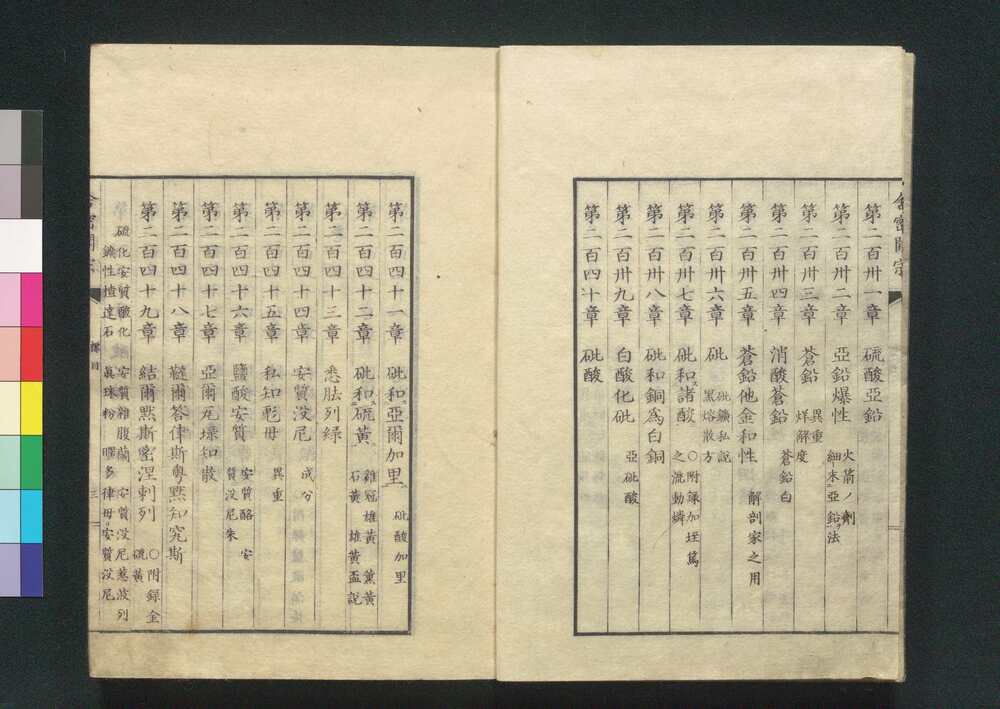 舎密開宗
第二百卅一章 硫酸亞鉛
第二百卅二章 亞鉛爆性 火箭ノ劑 細末亞鉛ノ法
第二百卅三章 蒼鉛 異重 烊解度
第二百卅四章 消酸蒼鉛 蒼鉛白
第二百卅五章 蒼鉛他金和性 解剖家之用
第二百卅六章 砒 砒鑛私說 黑熔散方
第二百卅七章 砒和諸酸 ○附録加垤篤之流動燐
第二百卅八章 砒和銅爲白銅
第二百卅九章 白酸化砒 亞砒酸
第二百四十章 砒酸
第二百四十一章 砒和亞爾加里 砒酸加里
第二百四十二章 砒和硫黄 雞冠雄黄 薰黄 石黄 雄黄盃說
第二百四十三章 悉肽列綠
第二百四十四章 安質没尼 成分
第二百四十五章 私知彪母 異重
第二百四十六章 鹽酸安質 安質酪 安質没尼朱
第二百四十七章 亞爾瓦壜知散
第二百四十八章 韃爾答律斯粤㸃知究斯
第二百四十九章 結爾㸃斯密涅剌列 ○附録金硫黄
硫化安質酸化 安質雜腹蘭 安質没尼葱波列
鑛性擅達石 眞珠粉 嚗多律母安質没尼
舎密開宗 譯目 三